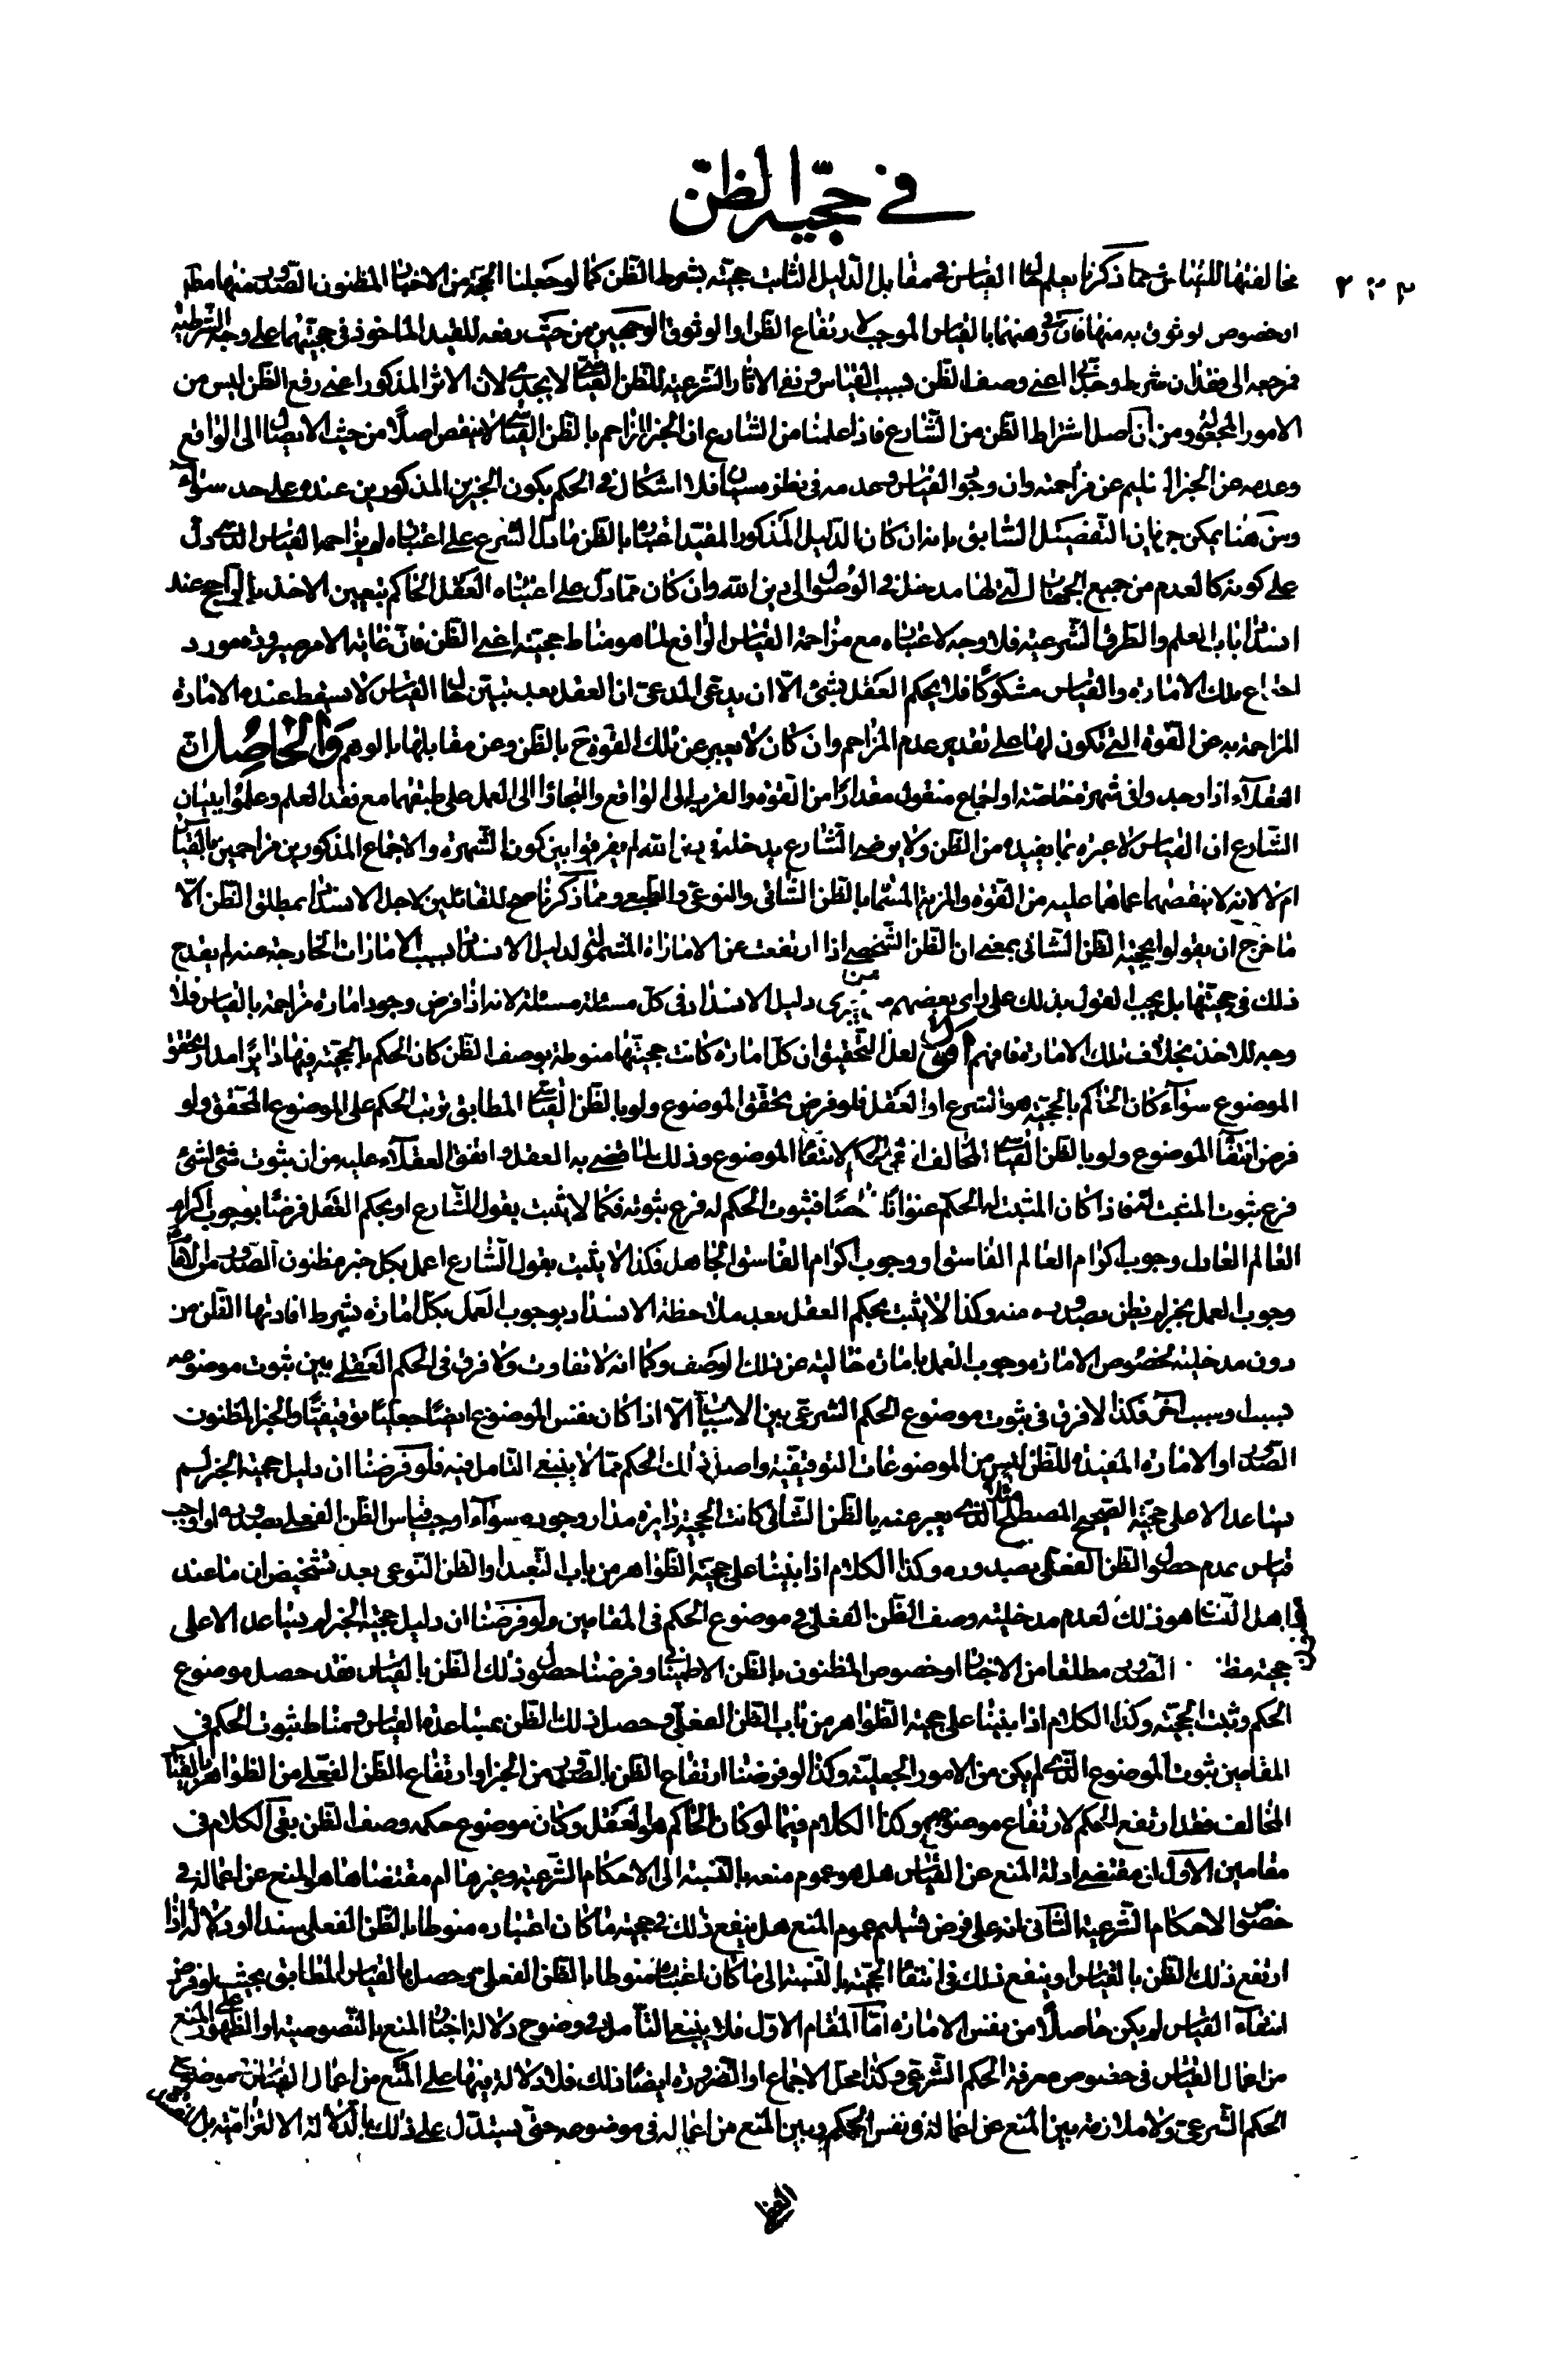 في حجّية الظنّ
٢٣٢
مخالفتها للقياس ثم مما ذكرنا يعلم حال القياس في مقابل الدليل الثابت حجيته بشرط الظن كما لو جعلنا الحجة من الاخبار المظنون الصدور منها مطلقا
او خصوص لوثوق به منها فان في وهنهما بالقياس الموجب لارتفاع الظن او الوثوق الوجهين من حيث رفعه للقيد الماخوذ في حجيتهما على وجه الشرطية
فمرجعه الى فقدان شرط وجداني اعني وصف الظن بسبب القياس ونفي الاثار الشرعية للظن القياسي لا يجدي لان الاثر المذكور اعني رفع الظن ليس من
الامور المجعولة ومن ان اصل اشتراط الظن من الشارع فاذا علمنا من الشارع ان الخبر المزاحم بالظن القياسي لا ينقص اصلا من حيث الايصال الى الواقع
وعدمه عن الخبر السليم عن مزاحمته وان وجود القياس وعدمه في نظره سيان فلا اشكال في الحكم بكون الخبرين المذكورين عنده على حد سواء
ومن هنا يمكن جريان التفصيل السابق بانه ان كان الدليل المذكور المقيد اعتباره بالظن مما دل الشرع على اعتباره لم يزاحمه القياس الذي دل
على كونه كالعدم من جميع الجهات التي لها مدخل في الوصول الى دين الله وان كان مما دل على اعتباره العقل الحاكم بتعيين الاخذ بالراجح عند
انسداد باب العلم والطرق الشرعية فلا وجه لاعتباره مع مزاحمة القياس الرافع لما هو مناط حجيته اعني الظن فان غاية الامر صيرورة مورد
اجتماع تلك الامارة والقياس مشكوكا فلا يحكم العقل بشئ الا ان يدعي المدعي ان العقل بعد تبين حال القياس لا يسقط عنده الامارة
المزاحمة به عن القوة التي تكون لها على تقدير عدم المزاحم وان كان لا يعبر عن تلك القوة ح بالظن وعن مقابلها بالوهم والحاصل ان
العقلاء اذا وجدوا في شهرة خاصة او اجماع منقول مقدارا من القوة والقرب الى الواقع والتجاوا الى العمل على طبقهما مع فقد العلم وعلموا ببيان
الشارع ان القياس لا عبرة بما يفيده من الظن ولا يرضى الشارع بدخله في دين الله لم يفرقوا بين كون الشهرة والاجماع المذكورين مزاحمين بالقياس
ام لا لانه لا ينقصهما عما هما عليه من القوة والمزية المسماة بالظن الشاني والنوعي والطبعي ومما ذكرنا صح للقائلين لاجل الانسداد بمطلق الظن الا
ما خرج ان يقولوا بحجية الظن الشاني بمعنى ان الظن الشخصي اذا ارتفعت عن الامارة المشمولة لدليل الانسداد بسبب الامارات الخارجة عنه لم يقدح
ذلك في حجيتها بل يجب القول بذلك على راي بعضهم ممن يجري دليل الانسداد في كل مسئلة مسئلة لانه اذا فرض وجود امارة مزاحمة بالقياس فلا
وجه للاخذ بخلاف تلك الامارة فافهم لكن لعل التحقيق ان كل امارة كانت حجيتها منوطة بوصف الظن كان الحكم بالحجية فيها دائرا مدار تحقق
الموضوع سواء كان الحاكم بالحجية هو الشرع او العقل فلو فرض تحقق الموضوع ولو بالظن القياسي المطابق ترتب الحكم على الموضوع المحقق ولو
فرض انتفاء الموضوع ولو بالظن القياسي المخالف انتفى الحكم لانتفاء الموضوع وذلك لما قضى به العقل واتفق العقلاء عليه من ان ثبوت شئ لشئ
فرع ثبوت المثبت له فاذا كان المثبت له الحكم عنوانا خاصا فثبوت الحكم له فرع ثبوته فكما لا يثبت بقول الشارع او بحكم العقل فرضا بوجوب اكرام
العالم العادل وجوب اكرام العالم الفاسق او وجوب اكرام الفاسق الجاهل فكذا لا يثبت بقول الشارع اعمل بكل خبر مظنون الصدور من الامام
وجوب العمل بخبر لم يظن بصدوره منه وكذا لا يثبت بحكم العقل بعد ملاحظة الانسداد بوجوب العمل بكل امارة بشرط افادتها الظن من
دون مدخلية لخصوص الامارة وجوب العمل بامارة خالية عن ذلك الوصف وكما انه لا تفاوت ولا فرق في الحكم العقلي بين ثبوت موضوعه
بسبب وسبب اخر فكذا لا فرق في ثبوت موضوع الحكم الشرعي بين الاسباب الا اذا كان نفس الموضوع ايضا جعليا توقيفيا والخبر المظنون
الصدور او الامارة المفيدة للظن ليس من الموضوعات التوقيفية واصل ذلك الحكم مما لا ينبغي التامل فيه فلو فرضنا ان دليل حجية الخبر لم
يساعد الا على حجية الصحيح المصطلح مثلا الذي يعبر عنه بالظن الشاني كانت الحجية دايرة مدار وجوده سواء اوجب قياس الظن الفعلي بصدوره او اوجب
قياس عدم حصول الظن الفعلي بصدوره وكذا الكلام اذا بنينا على حجية الظواهر من باب التعبد او الظن النوعي بعد تشخيص ان ما عند
اهل اللسان هو ذلك لعدم مدخلية وصف الظن الفعلي في موضوع الحكم في المقامين ولو فرضنا ان دليل حجية الخبر لم يساعد الا على
حجية مظنون الصدور مطلقا من الاخبار او خصوص المظنون بالظن الاطميناني وفرضنا حصول ذلك الظن بالقياس فقد حصل موضوع
الحكم وثبت الحجية وكذا الكلام اذا بنينا على حجية الظواهر من باب الظن الفعلي وحصل ذلك الظن بمساعدة القياس ومناط ثبوت الحكم في
المقامين ثبوت الموضوع الذي لم يكن من الامور الجعلية وكذا لو فرضنا ارتفاع الظن بالصدور من الخبر او ارتفاع الظن الفعلي من الظواهر بالقياس
المخالف فقد ارتفع الحكم لارتفاع موضوعه وكذا الكلام فيما لو كان الحاكم هو العقل وكان موضوع حكمه وصف الظن بقي الكلام في
مقامين الاول ان مقتضى ادلة المنع عن القياس هل هو عموم منعه بالنسبة الى الاحكام الشرعية وغيرها ام مقتضاها هو المنع عن اعماله في
خصوص الاحكام الشرعية الثاني انه على فرض تسليم عموم المنع هل ينفع ذلك في حجية ما كان اعتباره منوطا بالظن الفعلي سندا او دلالة اذا
ارتفع ذلك الظن بالقياس او ينفع ذلك في انتفاء الحجية بالنسبة الى ما كان اعتباره منوطا بالظن الفعلي وحصل بالقياس المطابق بحيث لو فرض
انتفاء القياس لم يكن حاصلا من نفس الامارة اما المقام الاول فلا ينبغي التامل في وضوح دلالة اخبار المنع بالنصوصية او الظهور على المنع
من اعمال القياس في خصوص معرفة الحكم الشرعي وكذا محل الاجماع او الضرورة ايضا ذلك فلا دلالة فيها على المنع من اعمال القياس في موضوع
الحكم الشرعي ولا ملازمة بين المنع عن اعماله في نفس الحكم وبين المنع من اعماله في موضوعه حتى يستدل على ذلك بالدلالة الالتزامية بل